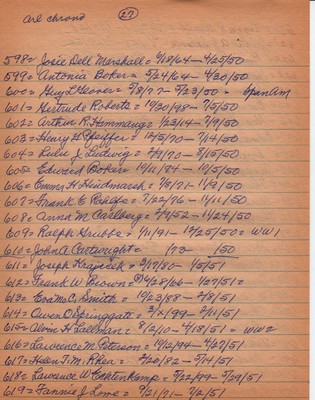 are chrono
27
598 = Josie Dell Marshall = 9/18/64 - 4/25/50
599 = Antonia Boker = 5/24/64 - 4/30/50
600 = Guy L. Geover = 7/8/77 - 5/23/50 = Span Am
601 = Gertrude Roberts = 10/20/98 - 7/5/50
602 = Arthur R. Hammang = 1/23/14 - 7/9/50
603 = Henry G. Pfeiffer = 12/5/70 - 7/14/50
604 = Lulu J. Ludwig = 2/9/70 - 8/15/50
605 = Edward Boker = 10/11/94 - 10/5/50
606 = Emma H. Hindmarsh = 9/8/71 - 11/9/50
607 = Frank E. = 7/22/96 - 11/11/50
608 = Anna M. Carlberg = 2/9/52 - 11/24/50
609 = Ralph Grubbs = 9/11/91 - 12/25/50 = WW1
610 = John A. Cartwright = /73 - /50
611 = Joseph Krajicek = 3/17/80 - 1/5/51
612 = Frank W. Brown = 4/28/66 - 1/27/51 =
613 = C. Smith = 10/23/58 - 2/8/51
614 = Owen = 3/14/99 - 2/11/51
615 = Alvin H. Lallman = 8/2/10 - 4/18/51 = WW2
616 = Lawrence M. Peterson = 10/12/94 - 4/27/51
617 = Helen T. M. Rhea = 2/20/82 - 5/14/51
618 = Lawrence W. Eckstenkamp = 5/22/99 - 5/29/51
619 = Fannie J. Lowe = 1/21/71 - 7/2/51